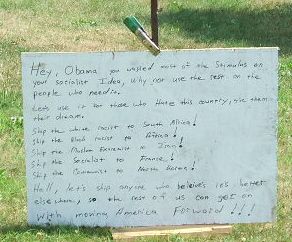 Hey, Obama you wasted most of the Stimulus on
your socialist Idea, why not use the rest on the
people who need it.
Let's use it for those who Hate this country, give them
their dream.
Ship the white racist to South Africa!
Ship the Black racist to Africa!
Ship the Muslim Extremist to Iran!
Ship the Socialist to France!
Ship the Communist to North Korea!
Hell, let's ship anyone who believes it's better
elsewhere, so the rest of us can get on
with moving America Forward!!!